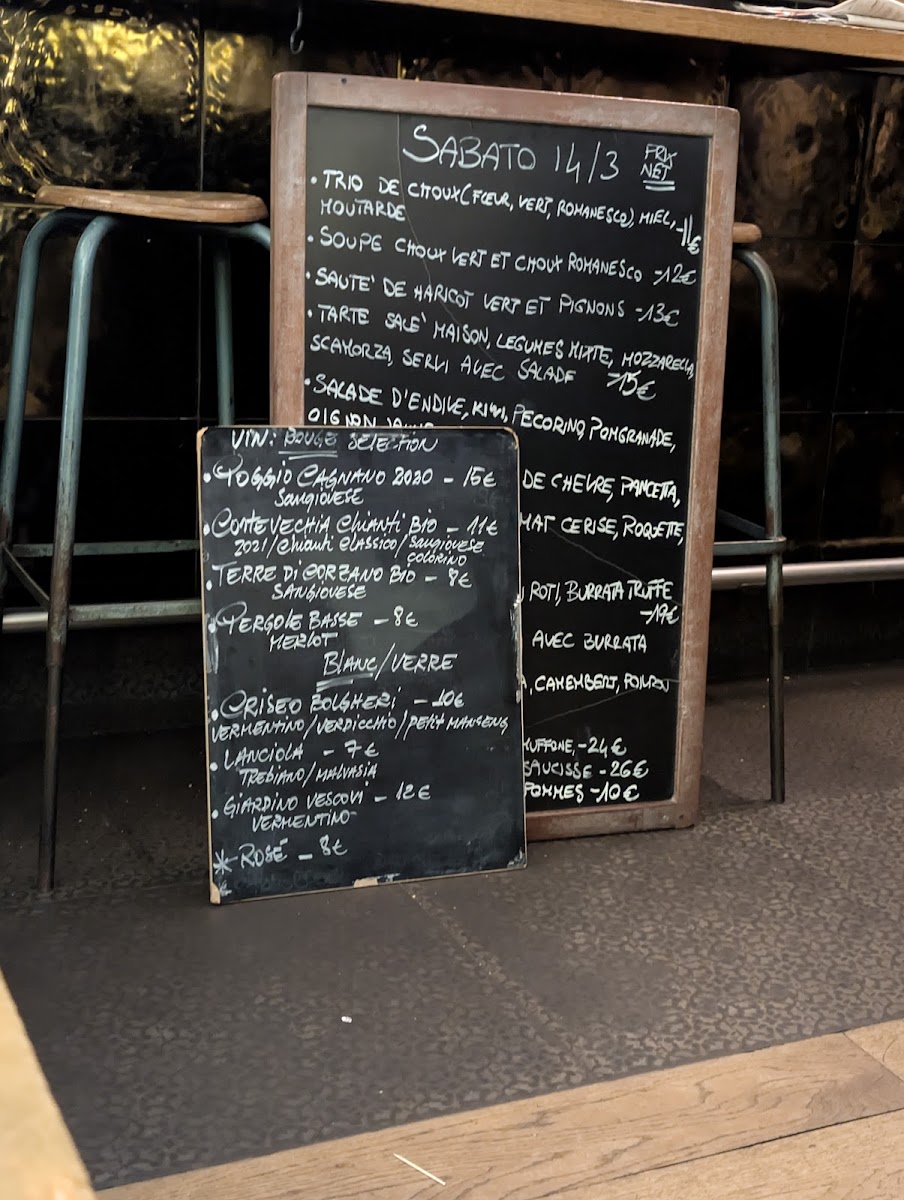 SABATO 14/3
PRIX
NET
• TRIO DE CHOUX (FLEUR, VERT, ROMANESCO), MIEL,
MOUTARDE -11€
• SOUPE CHOUX VERT ET CHOUX ROMANESCO -12€
• SAUTE' DE HARICOT VERT ET PIGNONS -13€
• TARTE SALE' MAISON, LEGUMES MIXTE, MOZZARELLA,
SCAMORZA, SERVI AVEC SALADE -15€
• SALADE D'ENDIVE, KIWI, PECORINO, POMGRANADE,
OIGNON
DE CHEVRE, PANCETTA,
MAT CERISE, ROQUETTE,
ROTI, BURRATA TRUFFE
-19€
AVEC BURRATA
, CAMEMBERT,
-24€
SAUCISSE -26€
POMMES -10€
VIN: ROUGE SELECTION
• POGGIO CAGNANO 2020 - 15€
SANGIOVESE
• CONTEVECCHIA CHIANTI BIO - 11€
2021/CHIANTI CLASSICO/SANGIOVESE
COLORINO
• TERRE DI CORZANO BIO - 9€
SANGIOVESE
• PERGOLE BASSE - 8€
MERLOT
BLANC/VERRE
• CRISEO BOLGHERI - 10€
VERMENTINO/VERDICCHIO/PETIT MANSENG
• LANCIOLA - 7€
TREBIANO/MALVASIA
• GIARDINO VESCOVI - 12€
VERMENTINO
* ROSÉ - 8€